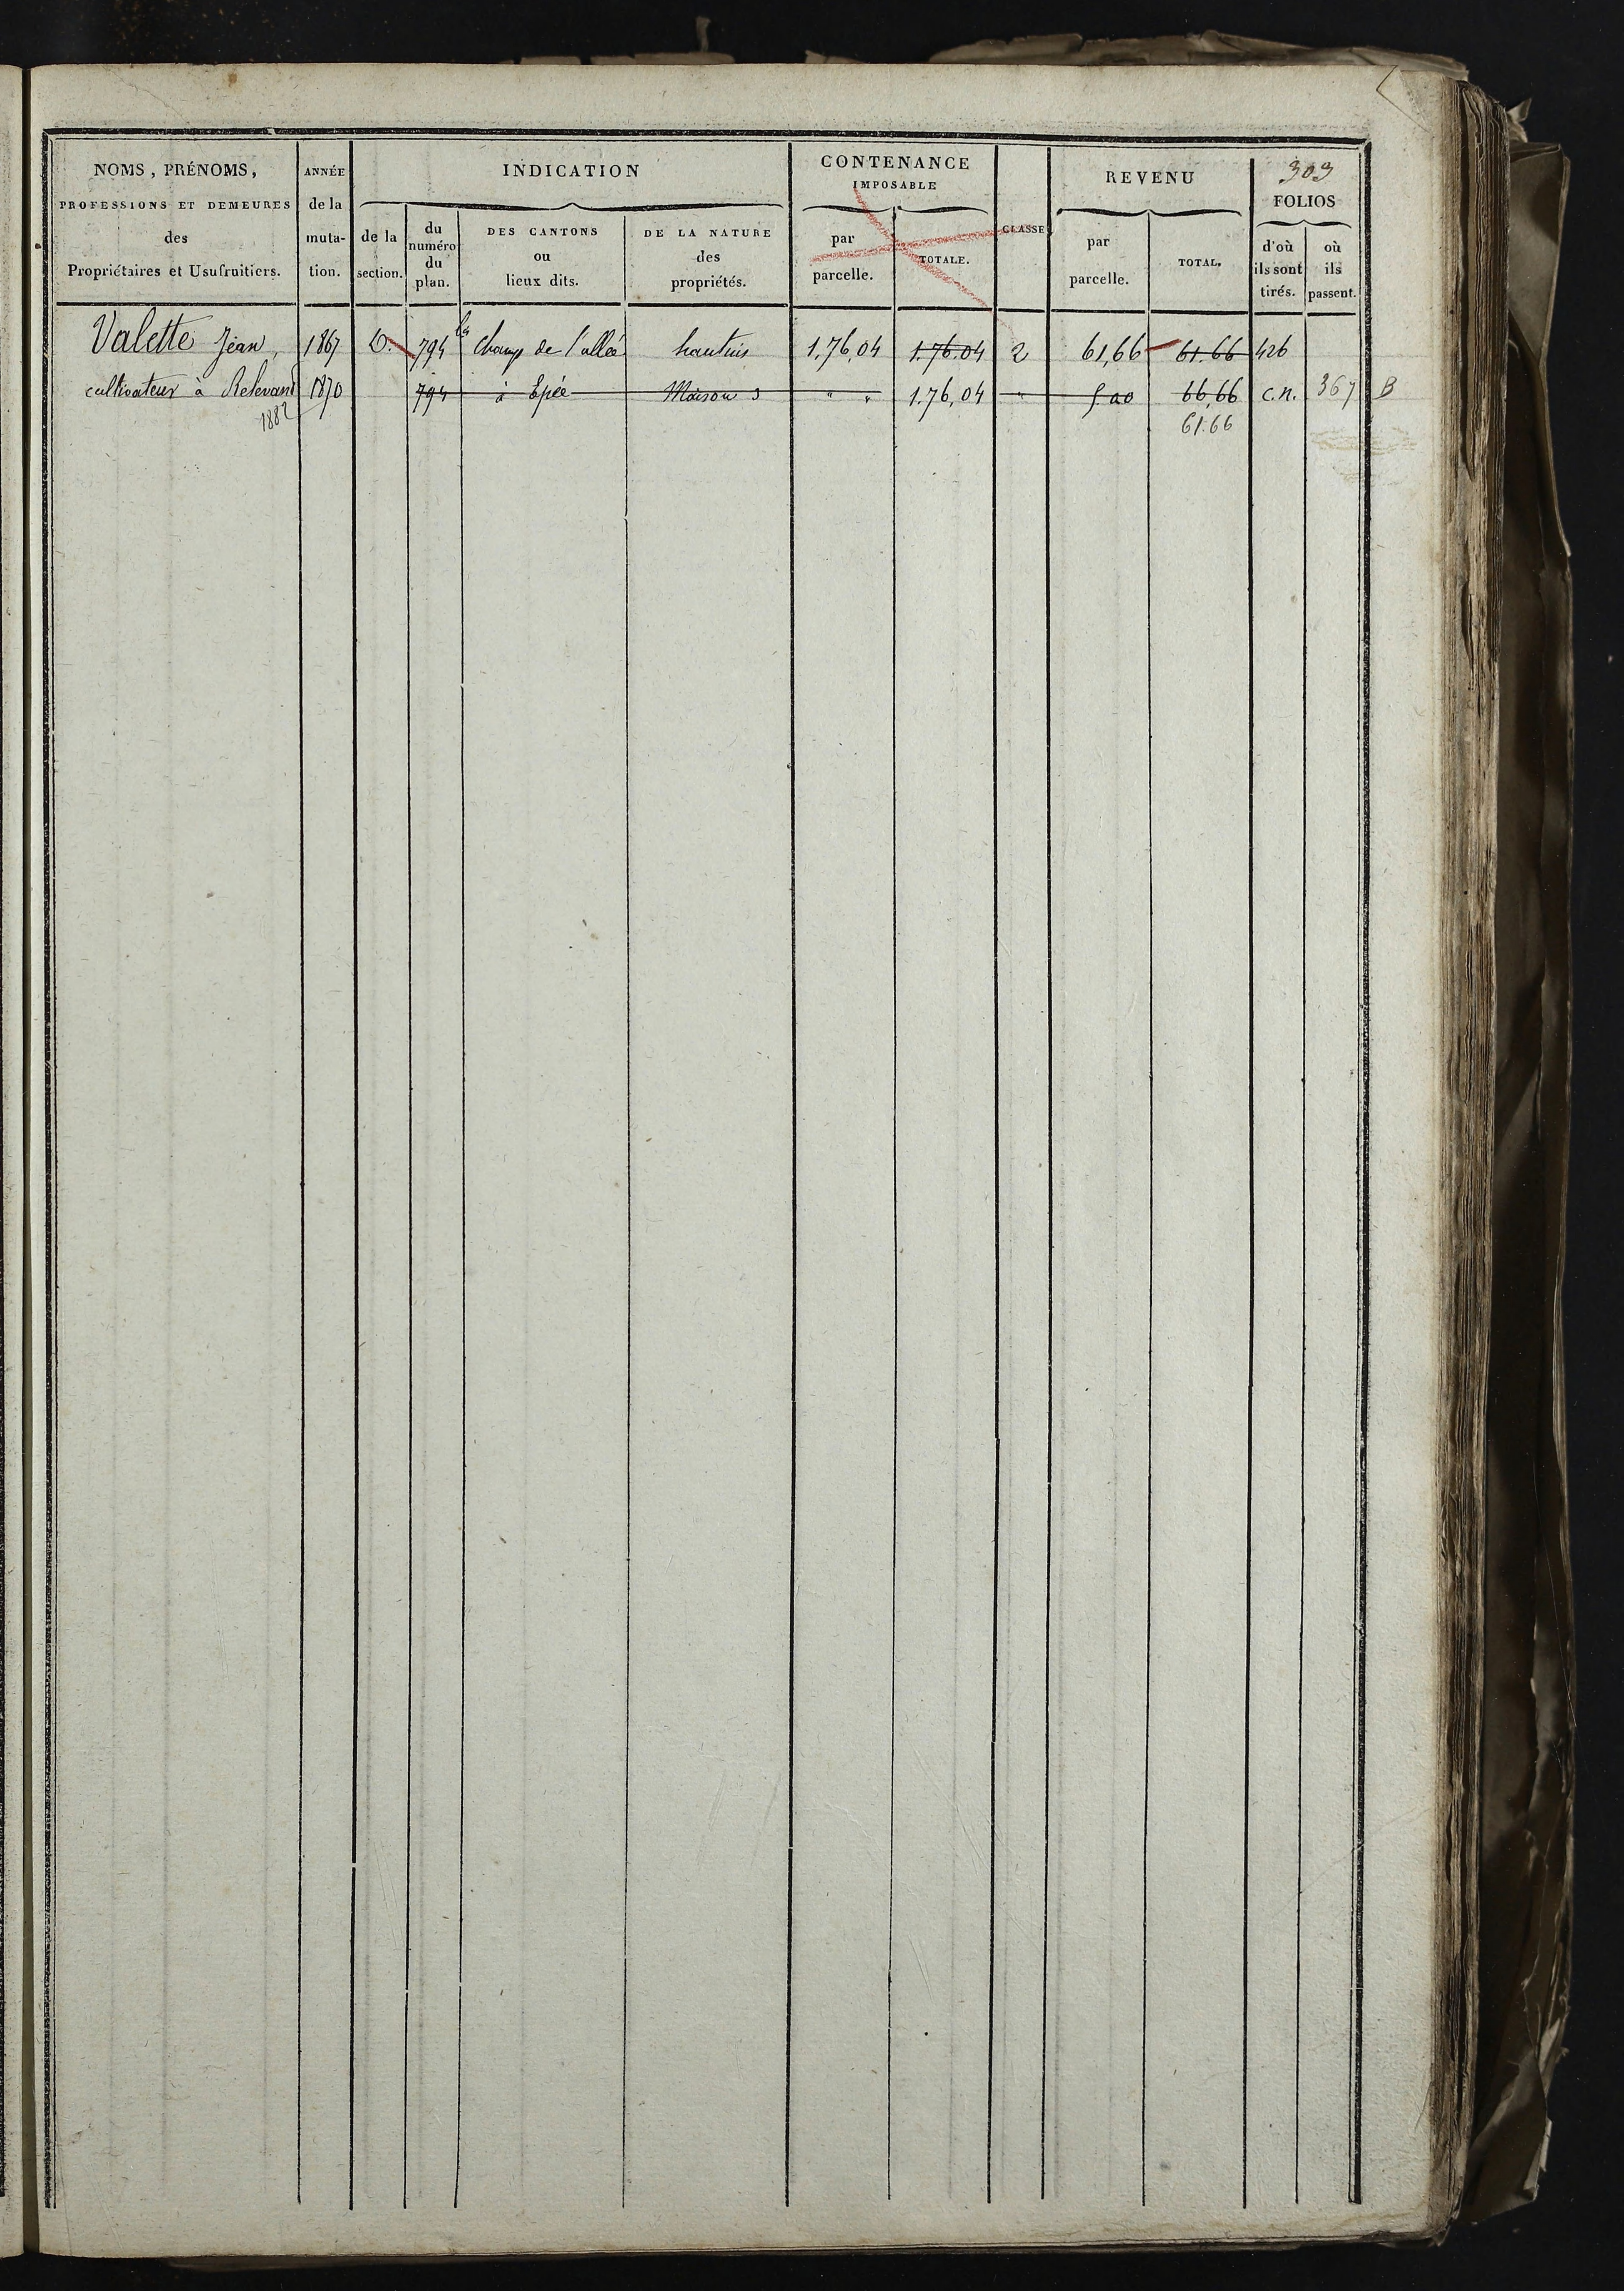 303
NOMS, PRÉNOMS,
PROFESSIONS ET DEMEURES
des
Propriétaires et Usufruitiers.
ANNÉE
de la
muta-
tion.
INDICATION
de la
section.
du
numéro
du
plan.
DES CANTONS
ou
lieux dits.
DE LA NATURE
des
propriétés.
CONTENANCE
IMPOSABLE
par
parcelle.
TOTALE.
CLASSE
REVENU
par
parcelle.
TOTAL.
FOLIOS
d'où
ils sont
tirés.
où
ils
passent.
Valette Jean, 1867 794 Champ de l'allée hautins 1.76,04 1.76.04 2 61,66 61.66 426
cultivateur à 1870 794 à Epée Maison 3 " " 1.76,04 " 5 00 66,66 c.n. 367 B
1882 61.66